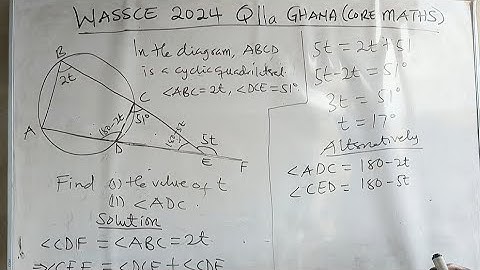 WASSCE 2024 Q11a GHANA (CORE MATHS)
In the diagram, ABCD
is a cyclic quadrilateral.
<ABC=2t, <DCE=51°.
B
2t
C
51°
A
180-2t
D
180-5t
5t
E
F
Find (i) the value of t
(ii) <ADC
Solution
<CDF = <ABC = 2t
⇒ <CEF = <DCE + <CDE
5t = 2t + 51
5t-2t = 51°
3t = 51°
t = 17°
Alternatively
<ADC = 180-2t
<CED = 180-5t